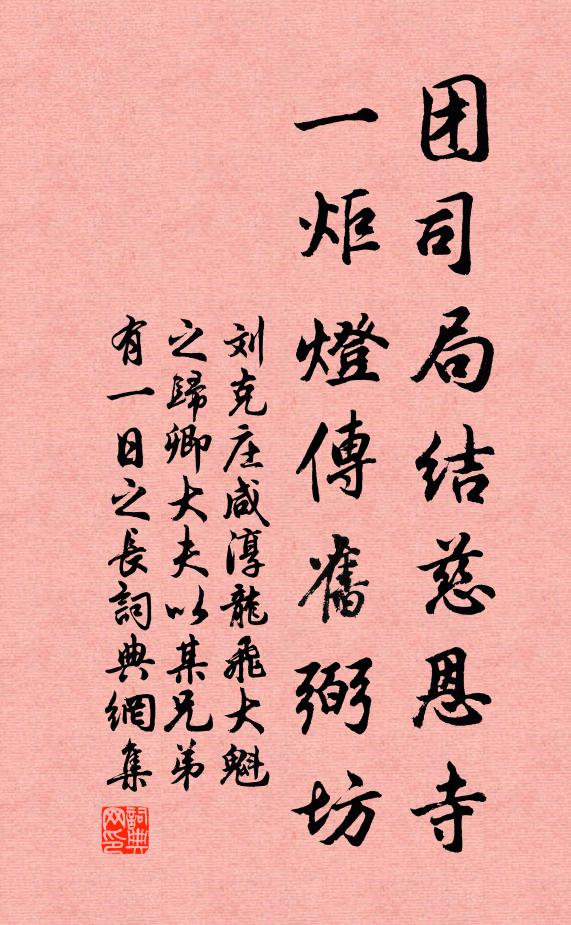 团司局结慈恩寺
一炬燈傳舊弼坊
刘克庄咸淳龍飛大魁
之歸卿大夫以某兄弟
有一日之長詞典網集
詞典网印